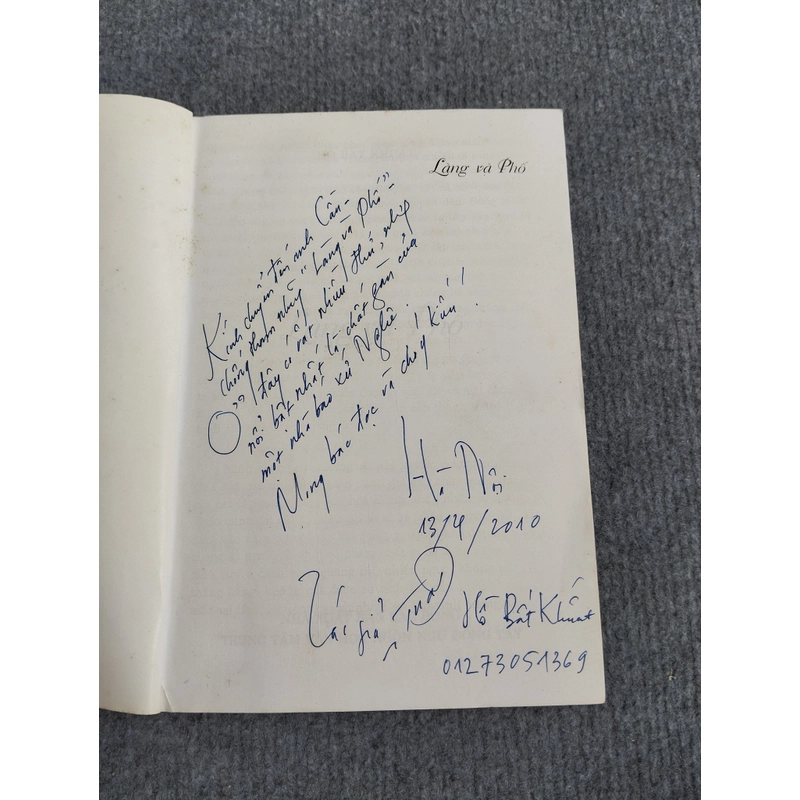 Làng và Phố
Kính chuyển đến anh Cần -
chồng thơm những "Làng và phố" -
Ở đây có rất nhiều thứ, nhưng
nổi bật nhất là chất gàn của
một nhà báo xứ Nghệ.
Mong bác đọc và cho ý kiến!
Hà Nội
13/4/2010
Tác giả
Hồ Bất Khuất
01273051369